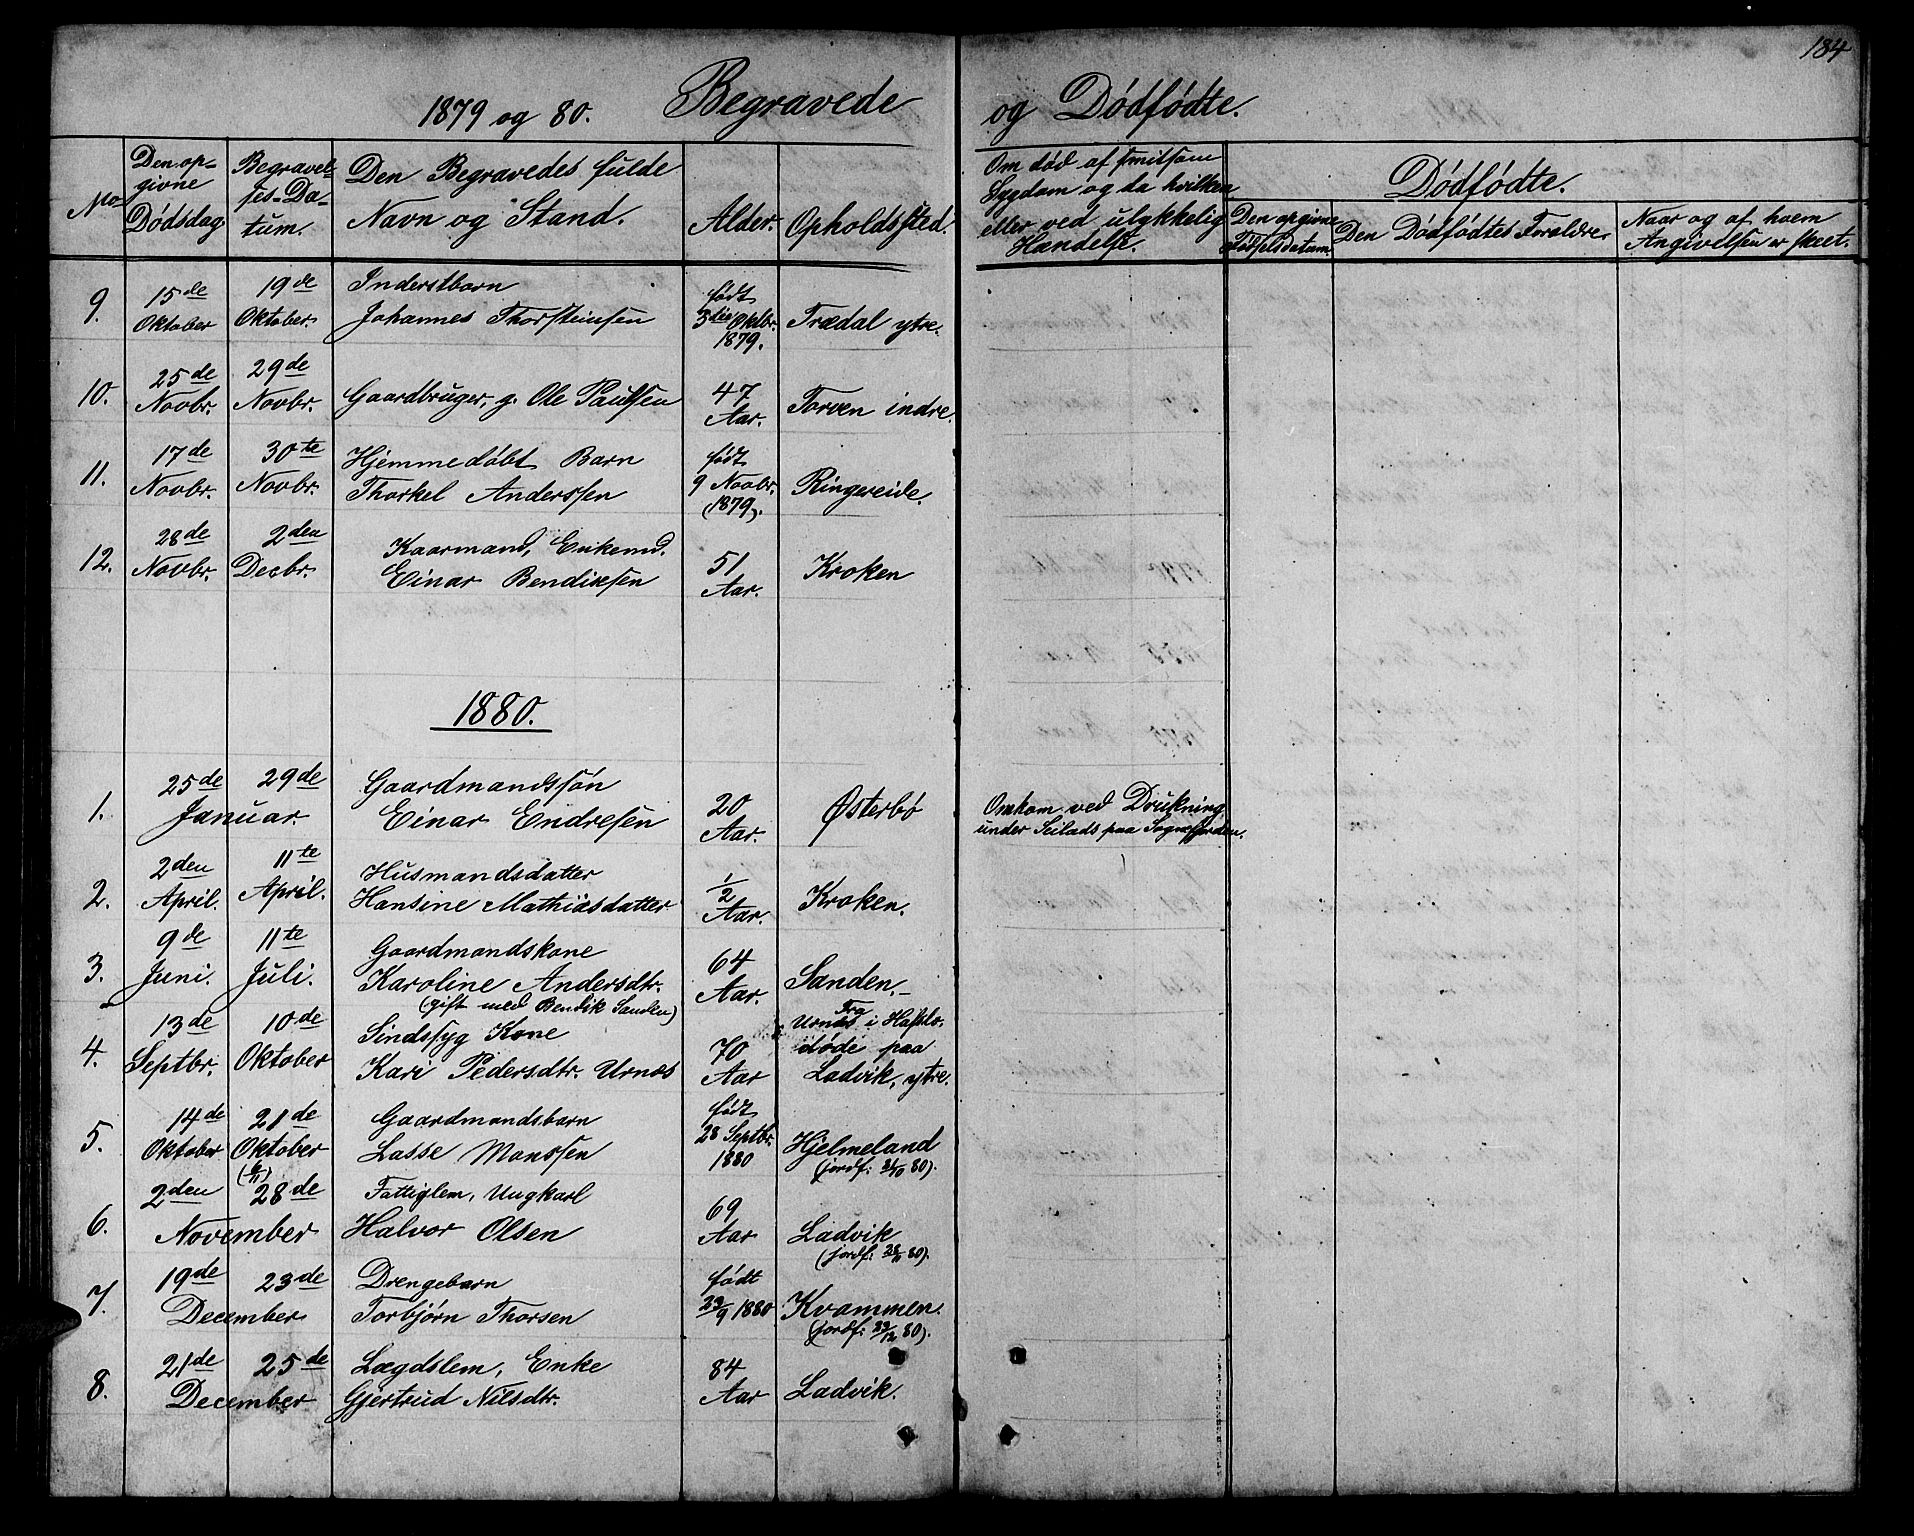 184
1879 og 80. Begravede og Dødfødte.
No
Den opgivne Dødsdag
Begravelses-Datum.
Den Begravedes fulde Navn og Stand.
Alder.
Opholdssted.
Om død af smitsom Sygdom og da hvilken eller ved ulykkelig Hændelse.
Dødfødte.
Den opgivne Fødselsdatum
Den Dødfødtes Forældre.
Naar og af hvem Angivelsen er skeet.
9. 15de Oktober 19de Oktober. Inderstbarn Johannes Thorsteinsen født 3die Oktbr. 1879. Trædal ytre.
10. 25de Novbr. 29de Novbr. Gaardbruger, g. Ole Paulsen 47 Aar. Torven indre.
11. 17de Novbr. 30te Novbr. Hjemmedøbt Barn Thorkel Anderssen født 9 Novbr. (1879). Ringereide.
12. 28de Novbr. 2den Decbr. Kaarmand, Enkemd. Einar Bendiksen 51 Aar. Kroken
1880.
1. 25de 29de Januar. Gaardmandssøn Einar Endresen 20 Aar. Østerbø Omkom ved Drukning under Seilads paa Sognefjorden.
2. 2den April. 11te April. Husmandsdatter Hansine Mathiasdatter 1/2 Aar. Kroken.
3. 9de Juni. 11te Juli. Gaardmandskone Karoline Andersdtr. (gift med Bendik Sanden) 64 Aar. Sanden.
4. 13de Septbr. 10de Oktober Sindssyg Kone Kari Pedersdtr. Urnæs 70 Aar Fra Urnæs i Hafslo. døde paa Ladvik, ytre.
5. 14de Oktober 21de Oktober Gaardmandsbarn Lasse Monssen født 28 Septbr. 1880 Hjelmeland (jordf: 31/10 80).
6. 2den (6/11) 28de November Fattiglem, Ungkarl Halvor Olsen 69 Aar Ladvik (jordf: 28/11 80).
7. 19de 23de December Drengebarn Torbjørn Thorsen født 29/9 1880 Kvammen. (jordf: 23/12 80).
8. 21de 25de December Lægdslem, Enke Gjertrud Nilsdtr. 84 Aar Ladvik.